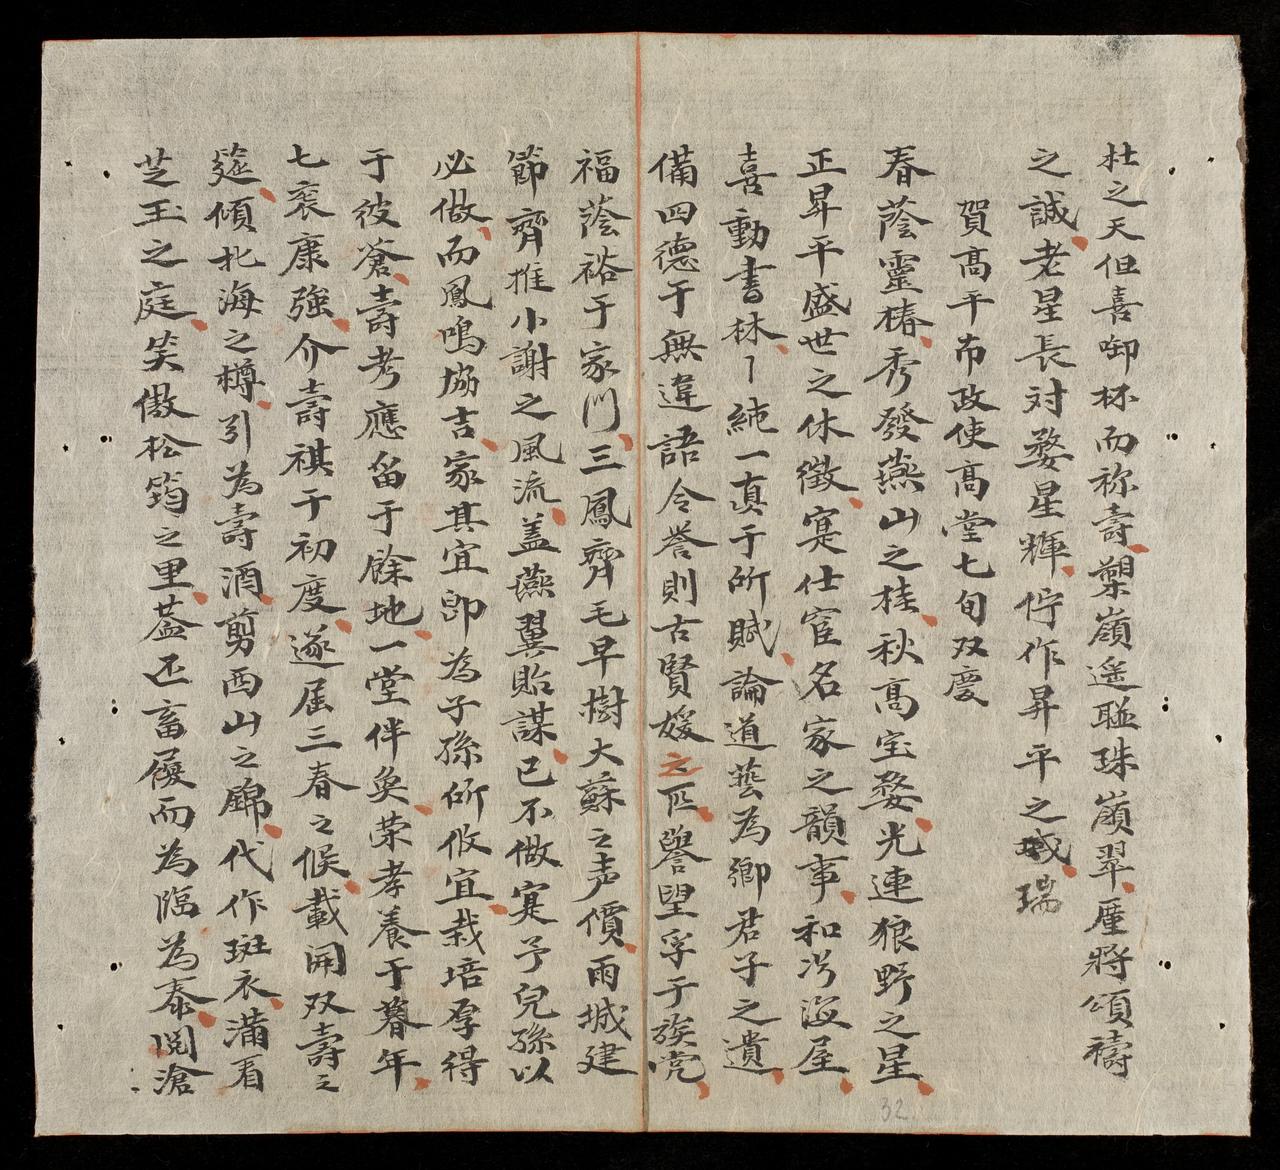 杜之天但喜啣杯而称壽槊嶺遥聯珠嶺翠廑將頌禱
之誠老星長対婺星輝佇作昇平之瑞
賀高平布政使高堂七旬双慶
春蔭靈椿秀發燕山之桂秋高宝婺光連狼野之星
正昇平盛世之休徵寔仕宦名家之韻事和浮海屋
喜動書林〻純一眞于所賦論道藝為鄉君子之遺
備四德于無違語令誉則古賢媛之匹譽望孚于族党
福蔭裕于家門三鳳齊毛早樹大蘇之声價雨城建
節齊推小謝之風流蓋燕翼貽謀已不做寔予兒孫以
必做而鳳鳴協吉家其宜即為子孫所攸宜栽培厚得
于彼蒼壽考應留于餘地一堂伴奐荣孝養于暮年
七袠康強介壽祺于初度遂届三春之候載開双壽之
筵傾北海之樽引為壽酒剪西山之錦代作斑衣滿看
芝玉之庭笑傲松筠之里蓋丕畜履而為臨為泰閲滄
32